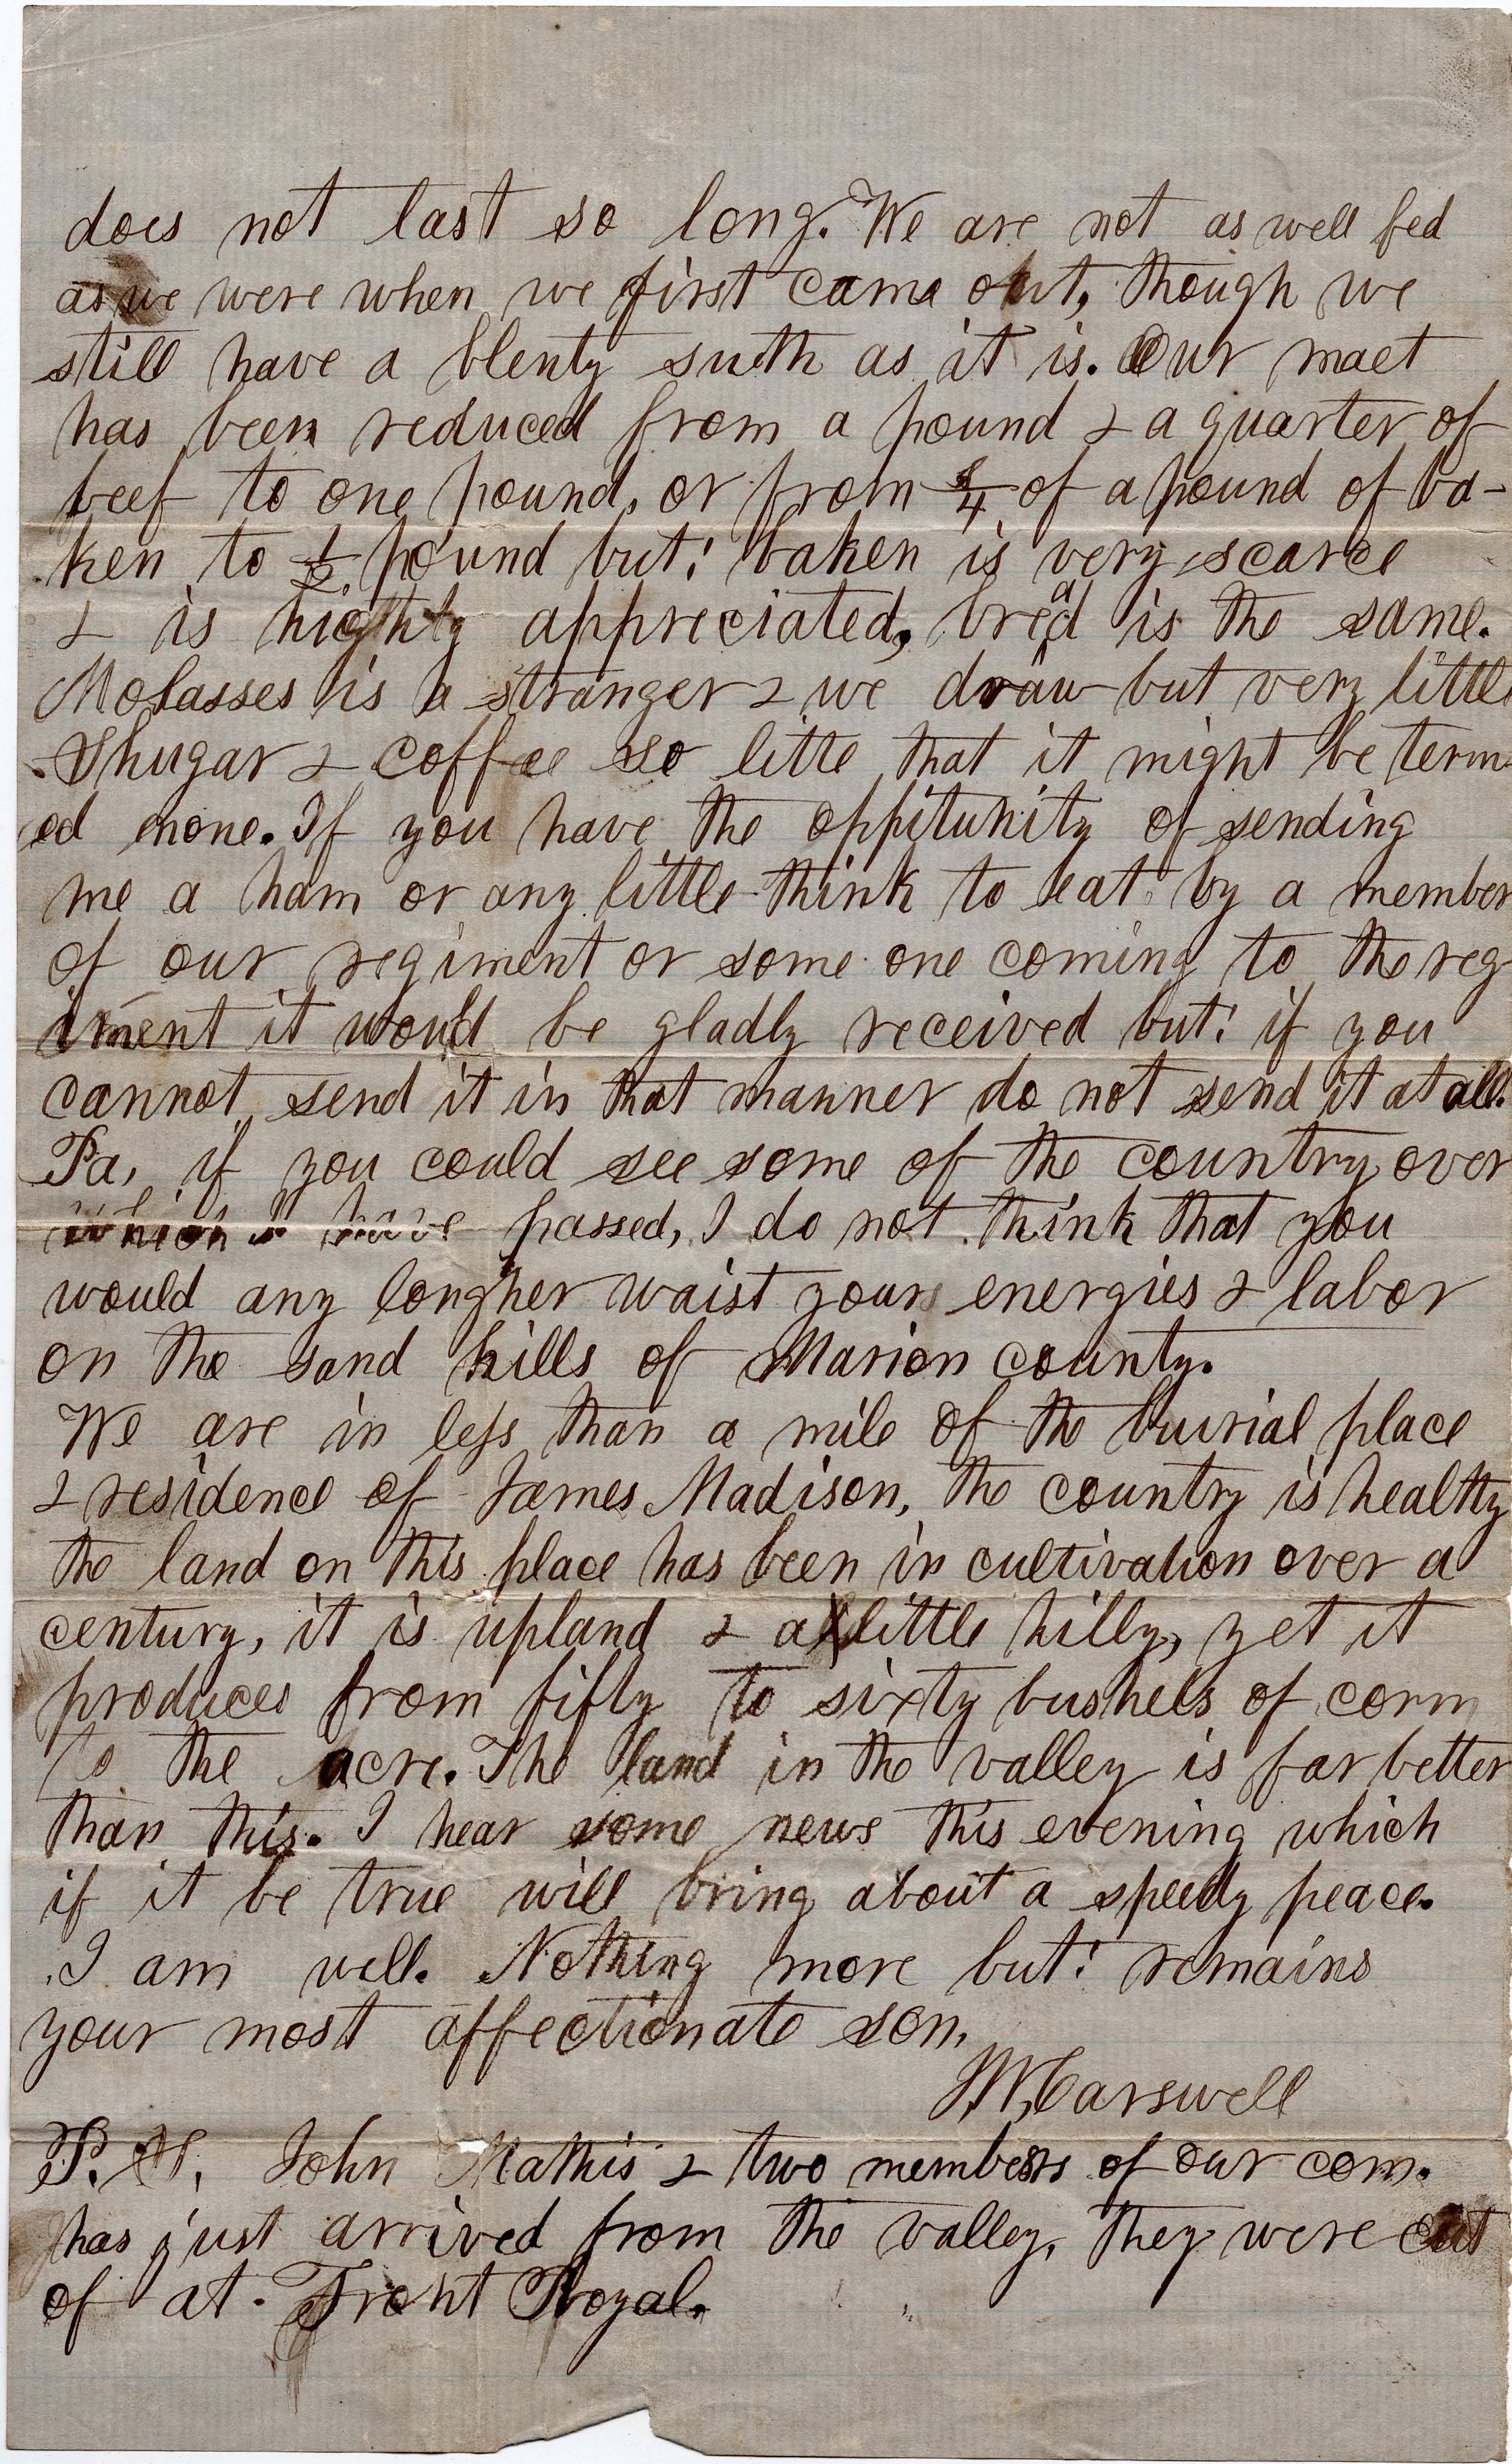 does not last so long. We are not as well fed
as we were when we first came out, though we
still have a plenty such as it is. Our maet
has been reduced from a pound & a quarter of
beef to one pound, or from 3/4 of a pound of ba-
ken to 1/2 pound but! baken is very scarce
& is highly appreciated, bread is the same.
Molasses is a stranger & we draw but very little
Shugar & coffee so litte that it might be term
ed none. If you have the oppitunity of sending
me a ham or any little think to eat by a member
of our regiment or some one coming to the reg
iment it would be gladly received but! if you
cannot send it in that manner do not send it at all.
Pa, if you could see some of the country over
which I have passed, I do not think that you
would any longher waist your energies & labor
on the sand hills of Marion county.
We are in less than a mile of the burial place
& residence of James Madison, the country is healthy
the land on this place has been in cultivation over a
century, it is upland & a little hilly, yet it
produces from fifty to sixty bushels of corn
to the acre. The land in the valley is far better
than this. I hear some news this evening which
if it be true will bring about a speedy peace.
I am well. Nothing more but! remains
your most affectionate son,
J.W. Carswell
P.S. John Mathis & two members of our com.
has just arrived from the valley, they were cut
of at Front Royal.